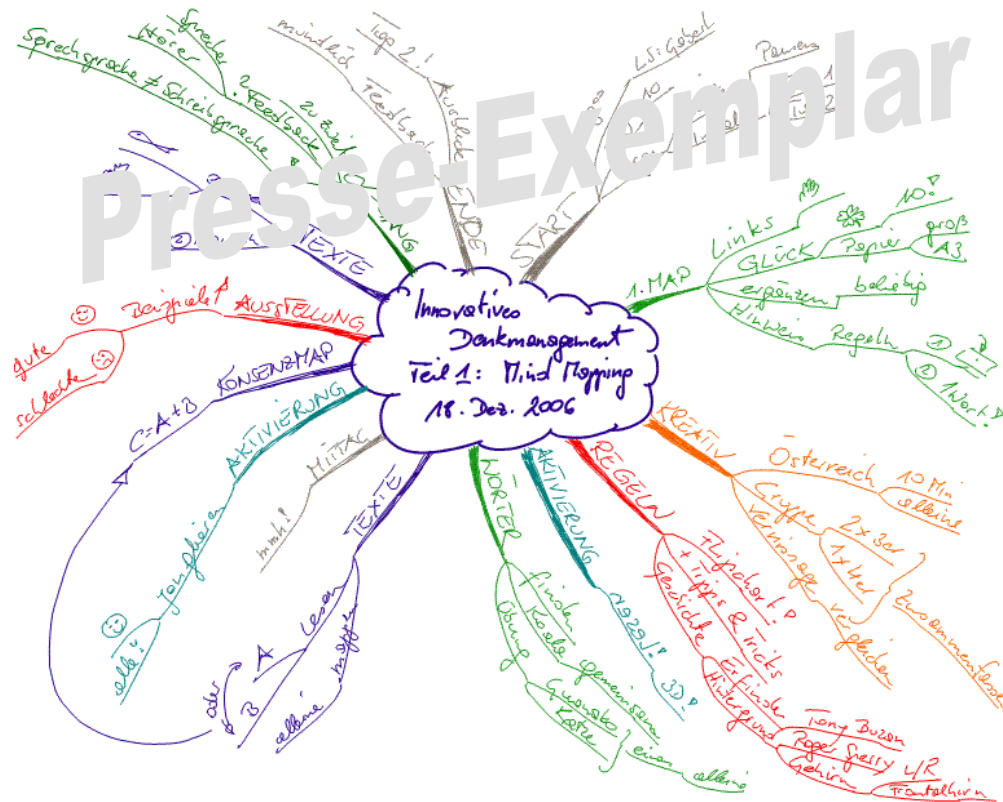 Presse-Exemplar
Innovatives
Denkmanagement
Teil 1: Mind Mapping
18. Dez. 2006
START
LS: Gabert
10
Pausen
1. MAP
Links
GLÜCK
10!
Papier
groß
A3
ergänzen
beliebig
Hinweis
Regeln
①
② 1Wort!
KREATIV
Österreich
10 Min
alleine
Gruppe
2 x 3er
1 x 4er
Zusammenfassen
Vernissage
vergleichen
REGELN
Flipchart!
+ Tipps & Tricks
Geschichte
Erfinder
Tony Buzan
Hintergrund
Roger Sperry
L/R
Gehirn
Frontalhirn
AKTIVIERUNG
3D!
WÖRTER
finden
Koala
gemeinsam
Übung
Guanabo
Katze
einen
alleine
TEXTE
Lesen
A
B
oder
mappen
alleine
MITTAG
mmh!
AKTIVIERUNG
Jonglieren
alle!
KONSENZMAP
C=A+B
AUSSTELLUNG
Beispiele
gute
schlechte
TEXTE
②
Sprechsprache ≠ Schreibsprache
Feedback
zu zweit
Sprecher
Hörer
ENDE
Ausblick
Tag 2!
Feedback
mündlich